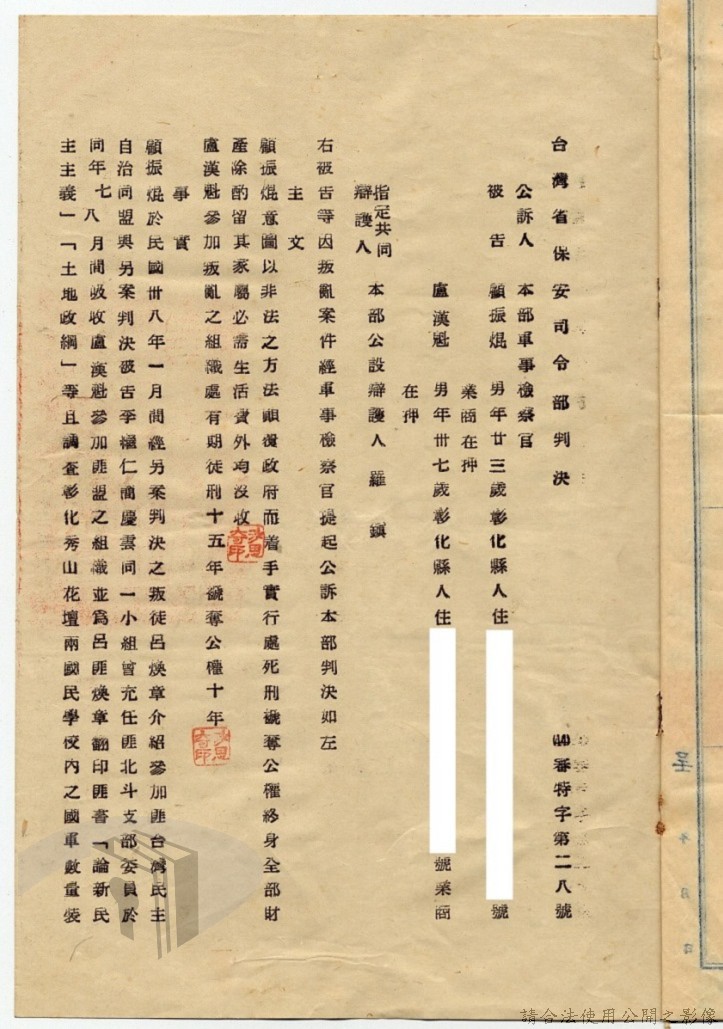 台灣省保安司令部判決
(44)審特字第二八號
公訴人 本部軍事檢察官
被告 顧振焜 男年廿三歲彰化縣人住
號
業商在押
盧漢魁 男年卅七歲彰化縣人住
號業商
在押
指定共同
辯護人 本部公設辯護人 羅鎮
右被告等因叛亂案件經軍事檢察官提起公訴本部判決如左
主文
顧振焜意圖以非法之方法顛覆政府而着手實行處死刑褫奪公權終身全部財
產除酌留其家屬必需生活費外均沒收
盧漢魁參加叛亂之組織處有期徒刑十五年褫奪公權十年
事實
顧振焜於民國卅八年一月間經另案判決之叛徒呂煥章介紹參加匪台灣民主
自治同盟與另案判決被告李繼仁簡慶雲同一小組曾充任匪北斗支部委員於
同年七八月間吸收盧漢魁參加匪盟之組織並為呂匪煥章翻印匪書「論新民
主主義」「土地政綱」等且調查彰化秀山花壇兩國民學校內之國軍數量裝
請合法使用公開之影像